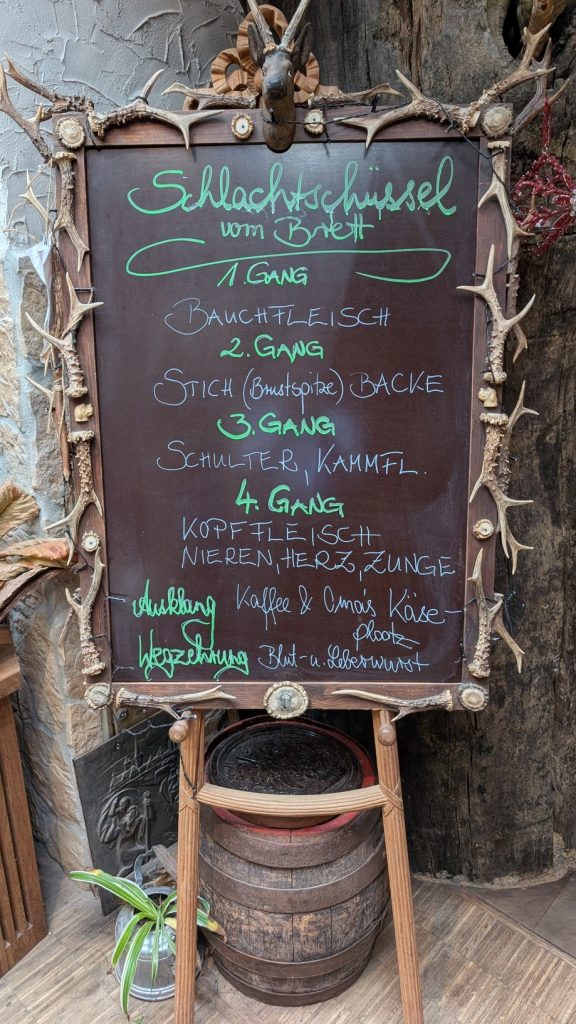 Schlachtschüssel
vom Brett
1. GANG
BAUCHFLEISCH
2. GANG
STICH (Brustspitze) BACKE
3. GANG
SCHULTER, KAMMFL.
4. GANG
KOPFFLEISCH
NIEREN, HERZ, ZUNGE
Ausklang Kaffee & Oma's Käse-
plootz
Wegzehrung Blut- u. Leberwurst